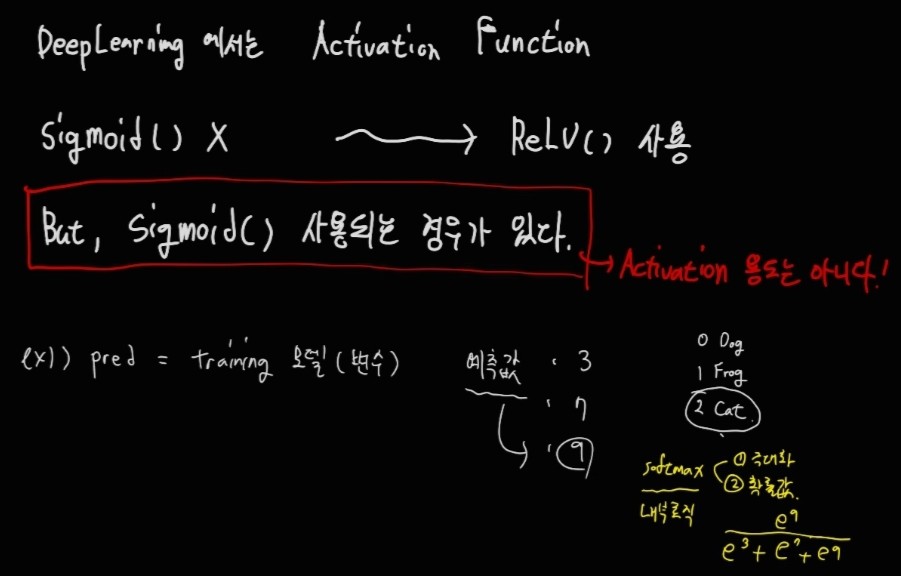 DeepLearning 에서는 Activation Function
Sigmoid() X → ReLU() 사용
But, Sigmoid() 사용되는 경우가 있다.
→ Activation 용도는 아니다!
ex1) pred = training 모델(변수)
예측값 : 3
: 7
: 9
0 Dog
1 Frog
2 Cat
softmax
① 극대화
② 확률값.
내부로직
e^9
e^3 + e^7 + e^9